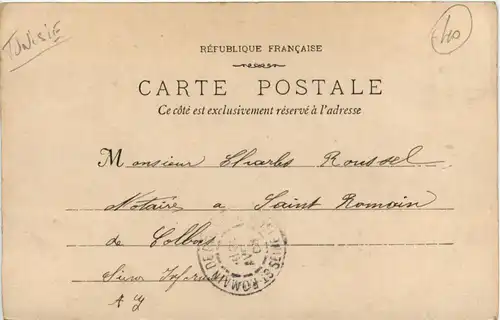 TUNISIE
40
RÉPUBLIQUE FRANÇAISE
CARTE POSTALE
Ce côté est exclusivement réservé à l'adresse
Monsieur Charles Roussel
Notaire a Saint Romain
de Colbosc
Seine Inférieure